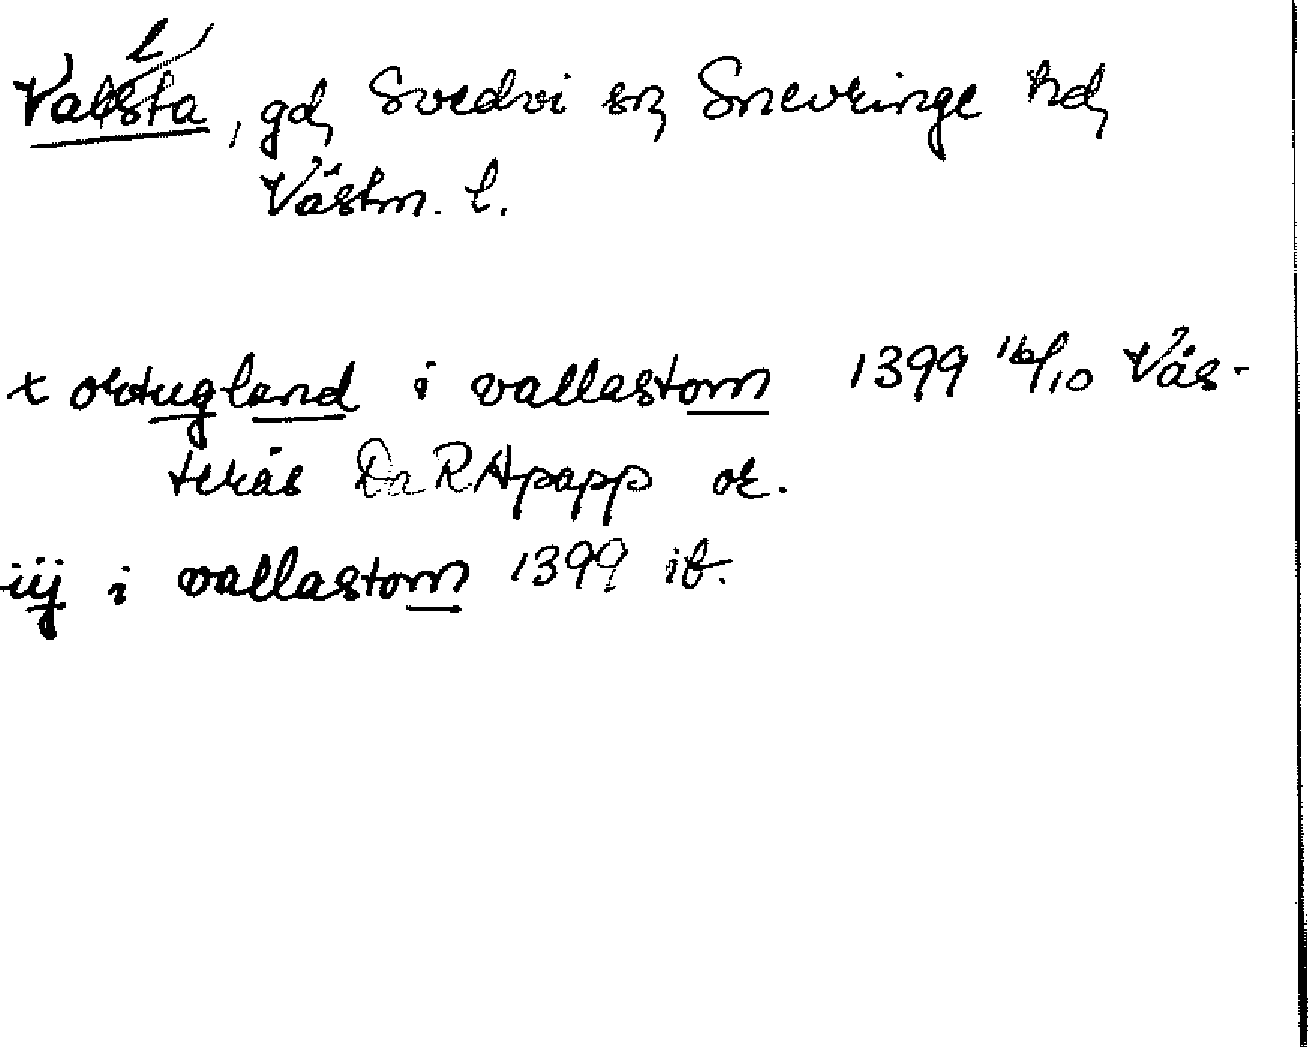 Vallsta, gd, Svedvi sn, Snevringe hd,
Västm. l.
x ortugland i vallastom 1399 16/10 Väs-
terås Da RApapp or.
iij i vallastom 1399 ib.